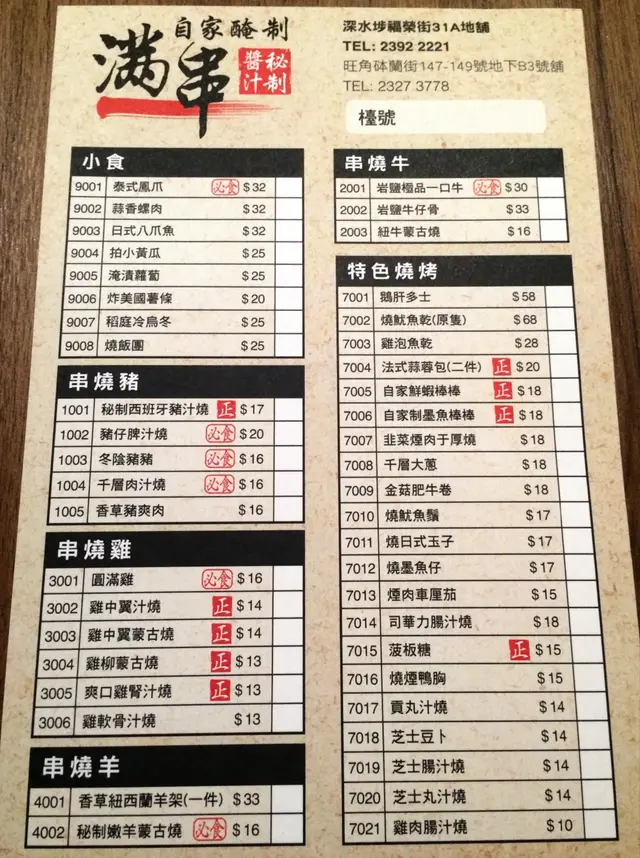 自家醃制
滿串
秘制
醬汁
深水埗福榮街31A地舖
TEL: 2392 2221
旺角砵蘭街147-149號地下B3號舖
TEL: 2327 3778
檯號
小食
9001 泰式鳳爪 必食 $32
9002 蒜香螺肉 $32
9003 日式八爪魚 $32
9004 拍小黃瓜 $25
9005 淹漬蘿蔔 $25
9006 炸美國薯條 $20
9007 稻庭冷烏冬 $25
9008 燒飯團 $25
串燒豬
1001 秘制西班牙豬汁燒 正 $17
1002 豬仔脾汁燒 必食 $20
1003 冬陰豬豬 必食 $16
1004 千層肉汁燒 必食 $16
1005 香草豬爽肉 $16
串燒雞
3001 圓滿雞 必食 $16
3002 雞中翼汁燒 正 $14
3003 雞中翼蒙古燒 正 $14
3004 雞柳蒙古燒 正 $13
3005 爽口雞腎汁燒 正 $13
3006 雞軟骨汁燒 $13
串燒羊
4001 香草紐西蘭羊架(一件) $33
4002 秘制嫩羊蒙古燒 必食 $16
串燒牛
2001 岩鹽極品一口牛 必食 $30
2002 岩鹽牛仔骨 $33
2003 紐牛蒙古燒 $16
特色燒烤
7001 鵝肝多士 $58
7002 燒魷魚乾(原隻) $68
7003 雞泡魚乾 $28
7004 法式蒜蓉包(二件) 正 $20
7005 自家鮮蝦棒棒 正 $18
7006 自家制墨魚棒棒 正 $18
7007 韭菜煙肉于厚燒 $18
7008 千層大蔥 $18
7009 金菇肥牛卷 $18
7010 燒魷魚鬚 $17
7011 燒日式玉子 $17
7012 燒墨魚仔 $17
7013 煙肉車厘茄 $15
7014 司華力腸汁燒 $18
7015 菠板糖 正 $15
7016 燒煙鴨胸 $15
7017 貢丸汁燒 $14
7018 芝士豆卜 $14
7019 芝士腸汁燒 $14
7020 芝士丸汁燒 $14
7021 雞肉腸汁燒 $10